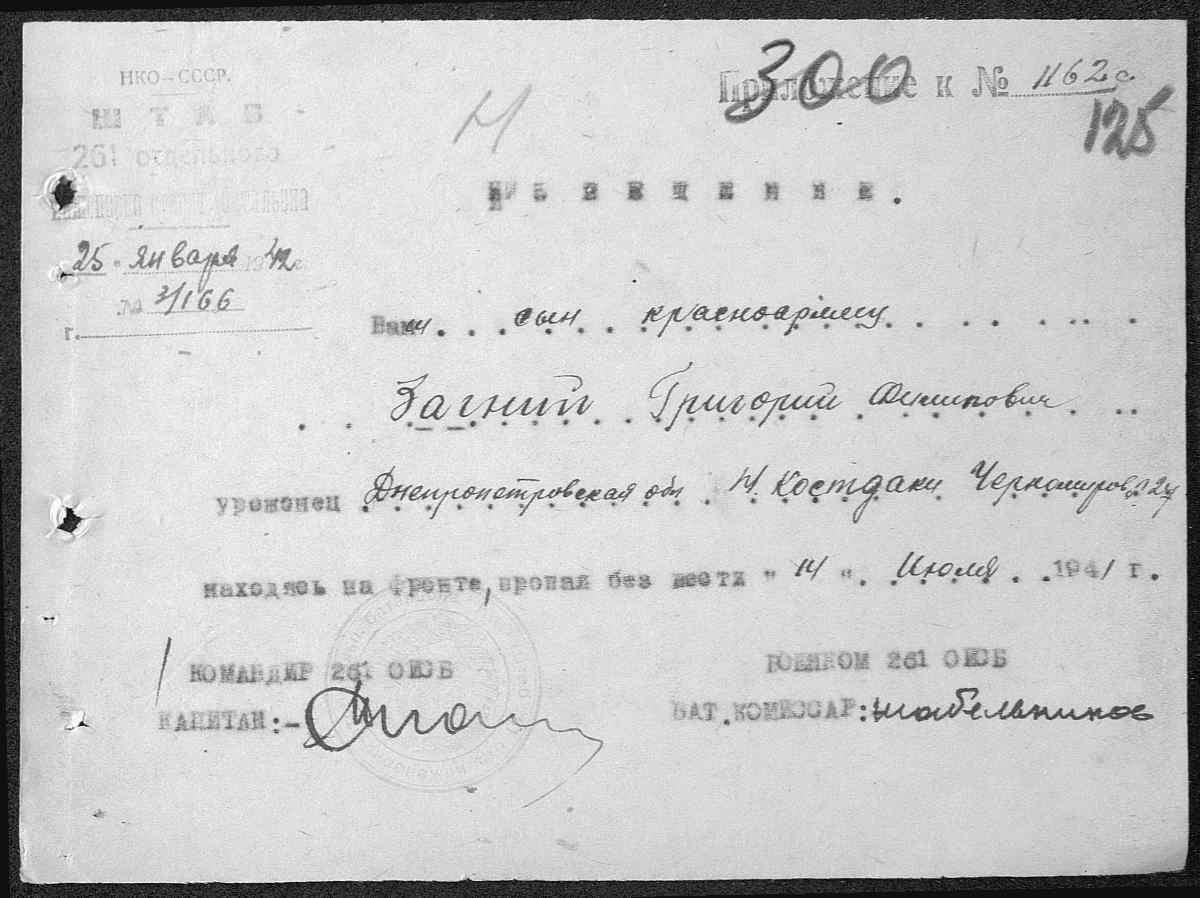 НКО-СССР.
ШТАБ
261 отдельного
"25" января 1942 г.
№ 3/166
г.
300
Приложение к № 1162с.
125
Н
ИЗВЕЩЕНИЕ.
Ваш сын красноармеец
Загний Григорий
уроженец Днепропетровская обл.
находясь на фронте, пропал без вести "14" Июля 1941 г.
КОМАНДИР 261 ОИСБ
КАПИТАН:-
ВОЕНКОМ 261 ОИСБ
БАТ.КОМИССАР: Шабельников